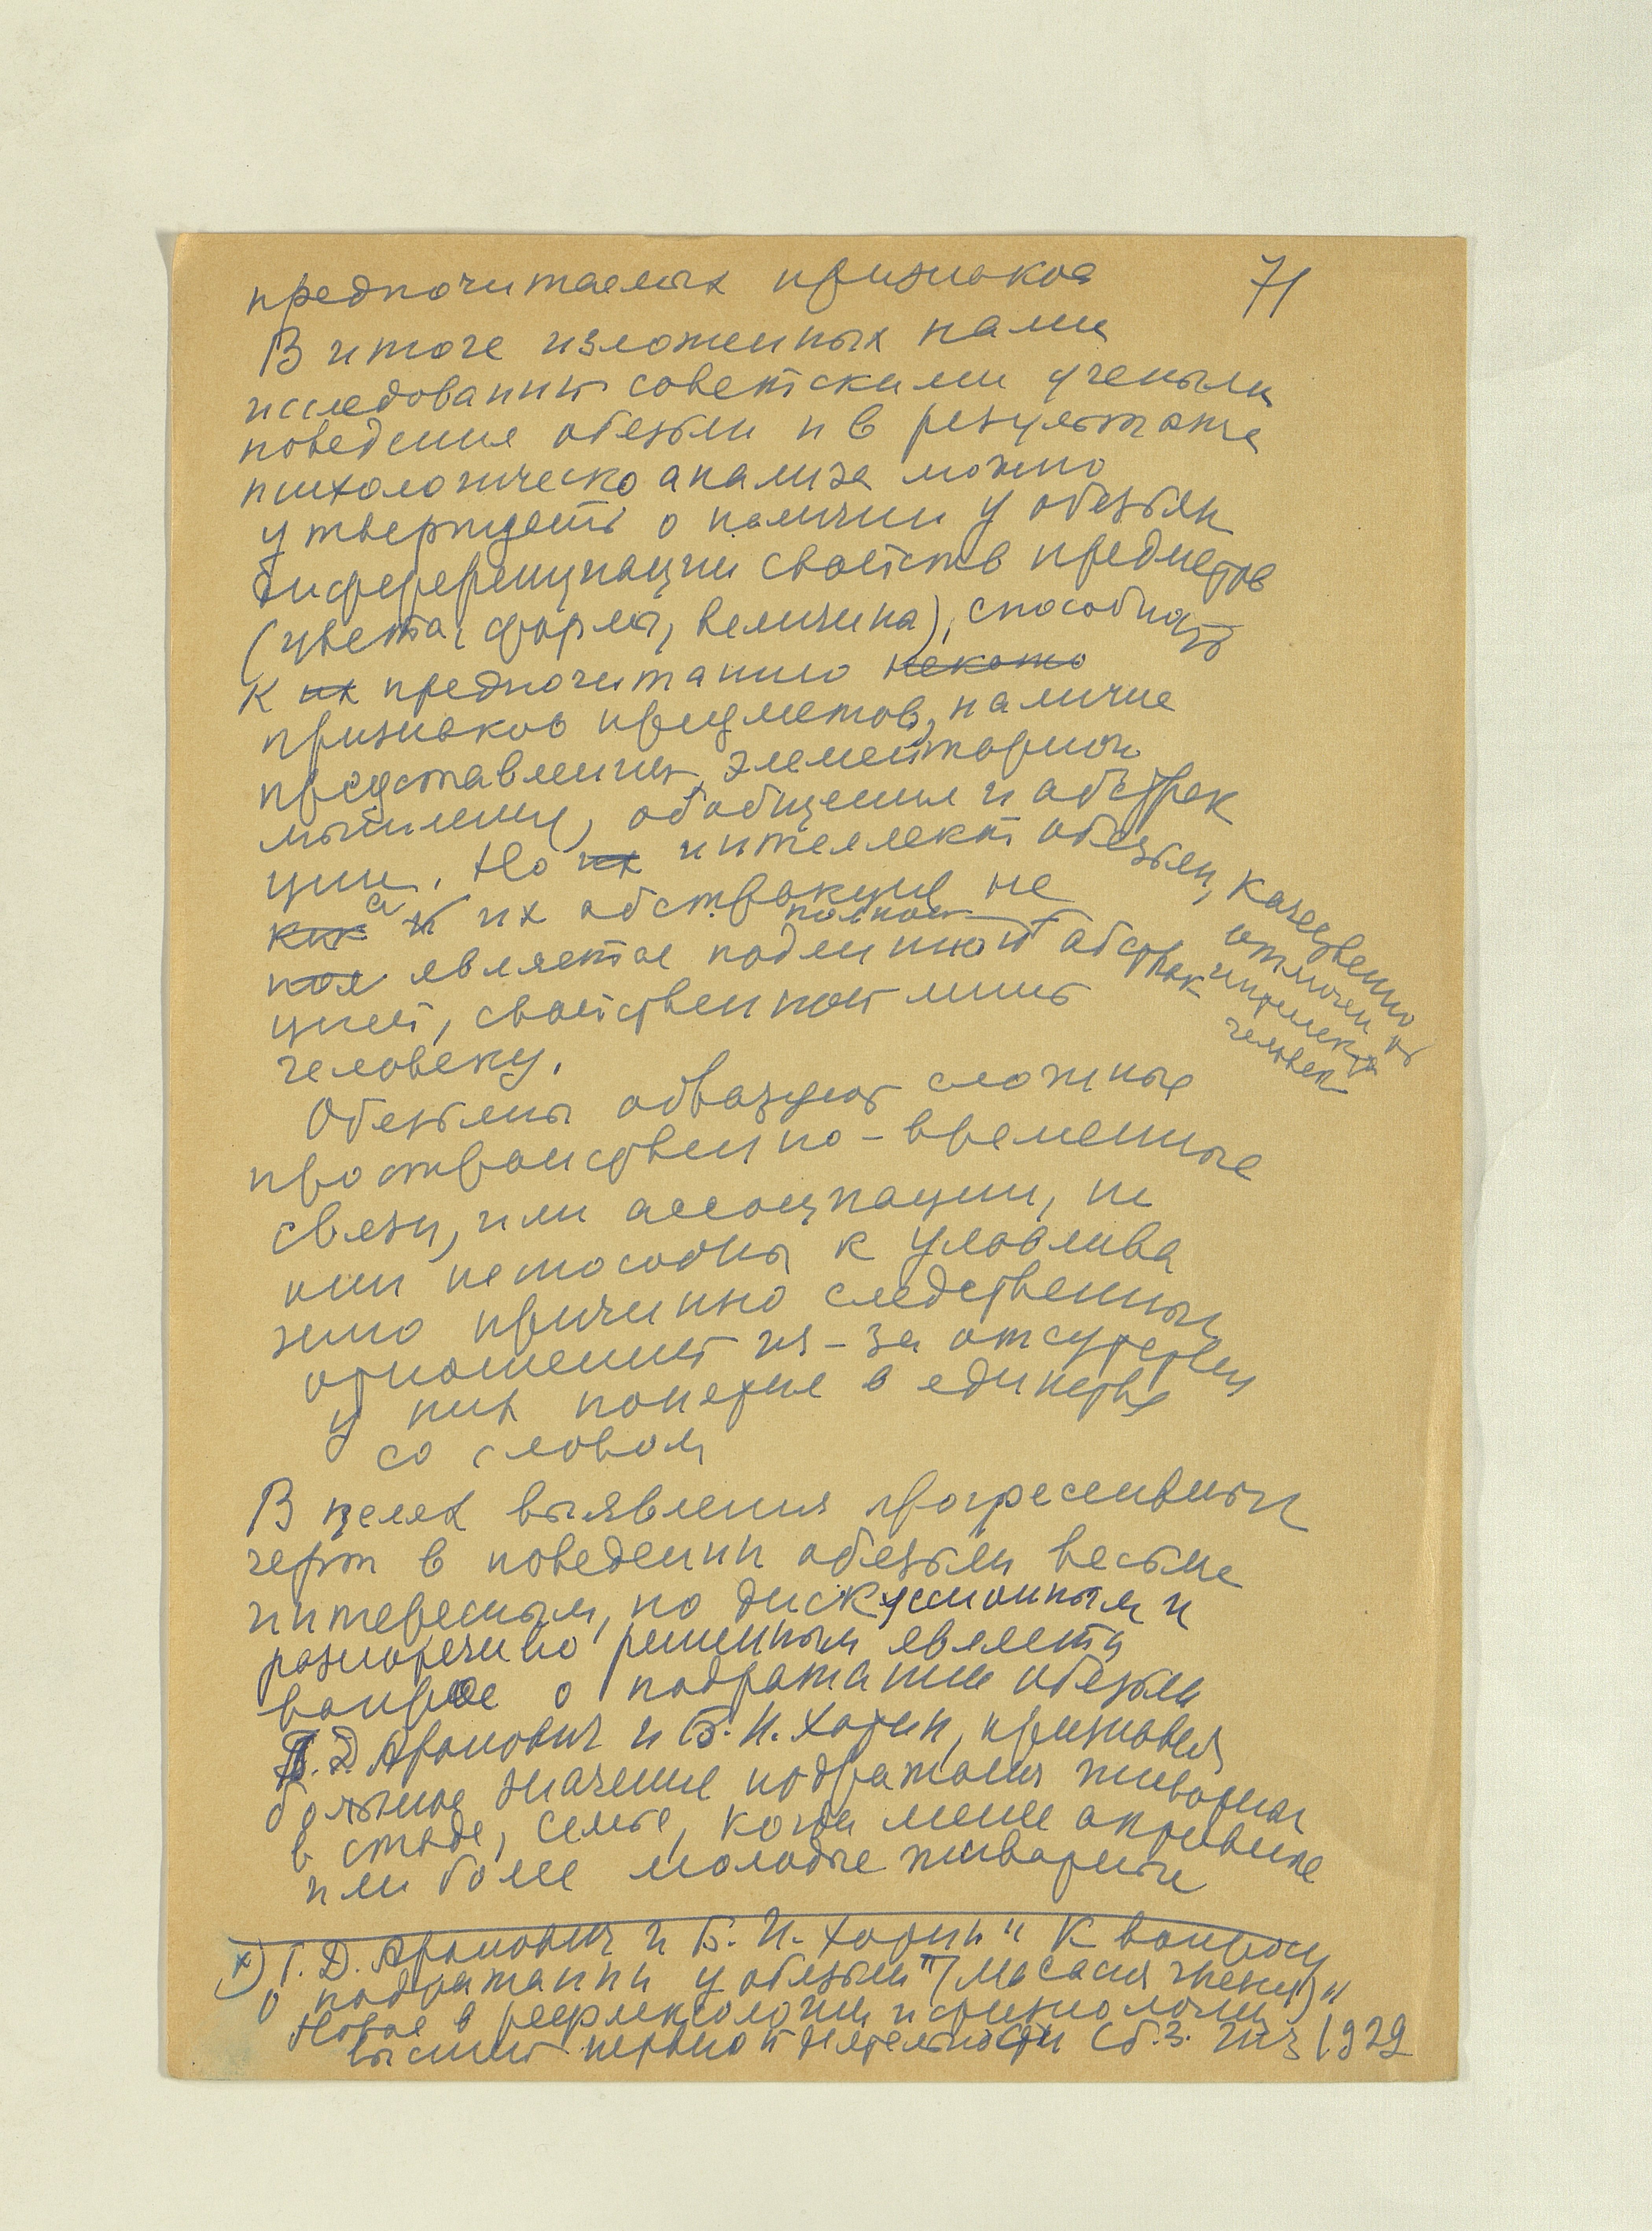 71
предпочитаемых признаков
В итоге изложенных нами
исследований советскими учеными
поведения обезьян и в результате
психологическо анализа можно
утверждать о наличии у обезьян
дифференциации свойств предметов
(цвета, формы, величина), способность
к их предпочитанию некото
признаков предметов, наличие
представлений, элементарного
мышления, обобщения и абстрак
ции. Но их интеллект обезьян, качественно
отличен от
интеллекта
человек
как а и их абстракция не
является подлинной полной абстрак
цией, свойственной лишь
человеку.
Обезьяны образуют сложные
пространственно-временные
связи, или ассоциации, но
они неспособны к улавлива
нию причинно следственных
отношений из-за отсутствия
у них понятие в единстве
со словом
В целях выявления прогрессивных
черт в поведении обезьян весьма
интересным, но дискуссионным и
разноречиво решенным является
вопрос о подражании обезьян
Г. Д. Аронович и Б. И. Хотин, признавая
большое значение подражания животных
в стаде, семье, когда менее опытные
или более молодые животные
x) Г. Д. Аронович и Б. И. Хотин "К вопросу
о подражании у обезьян"
Новое в рефлексологии и физиологии
высшей нервной деятельности Сб. 3. 1929